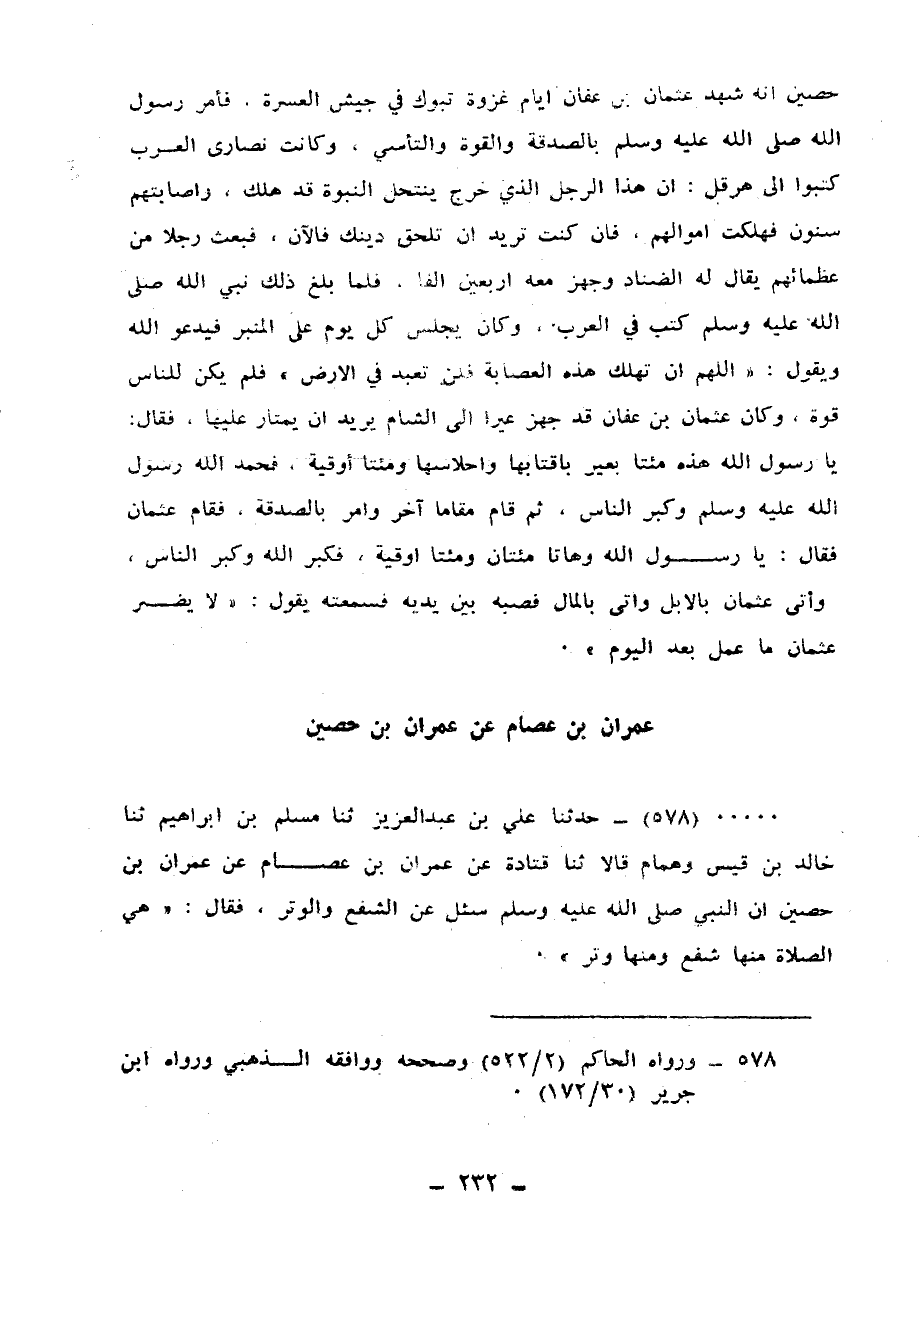 حصين انه شهد عثمان بن عفان ايام غزوة تبوك في جيش العسرة . فأمر رسول
الله صلى الله عليه وسلم بالصدقة والقوة والتأسي ، وكانت نصارى العـرب
كتبوا الى هرقل : ان هذا الرجل الذي خرج ينتحل النبوة قد هلك ، واصابتهم
سنون فهلكت اموالهم ، فان كنت تريد ان تلحق دينك فالآن ، فبعث رجلا من
عظمائهم يقال له الضناد وجهز معه اربعين الفا . فلما بلغ ذلك نبي الله صلى
الله عليه وسلم كتب في العرب ، وكان يجلس كل يوم على المنبر فيدعو الله
ويقول : « اللهم ان تهلك هذه العصابة فلن تعبد في الارض » فلم يكن للناس
قوة ، وكان عثمان بن عفان قد جهز عيرا الى الشام يريد ان يمتار عليها ، فقال:
يا رسول الله هذه مئتا بعير باقتابها واحلاسها ومئتا أوقية ، فحمد الله رسول
الله عليه وسلم وكبر الناس ، ثم قام مقاما آخر وامر بالصدقة ، فقام عثمان
فقال : يا رســـول الله وهاتا مئتان ومئتا اوقية ، فكبر الله وكبر الناس ،
وأتى عثمان بالابل واتى بالمال فصبه بين يديه فسمعته يقول : « لا يضـــر
عثمان ما عمل بعد اليوم » ٠
عمران بن عصام عن عمران بن حصين
٠٠٠٠٠ (٥٧٨) ــ حدثنا علي بن عبدالعزيز ثنا مسلم بن ابراهيم ثنا
خالد بن قيس وهمام قالا ثنا قتادة عن عمران بن عصـــام عن عمران بن
حصين ان النبي صلى الله عليه وسلم سئل عن الشفع والوتر ، فقال : « هي
الصلاة منها شفع ومنها وتر » ٠
٥٧٨ ــ ورواه الحاكم (٥٢٢/٢) وصححه ووافقه الـــذهبي ورواه ابن
جرير (١٧٢/٣٠) ٠
ــ ٢٣٢ ــ